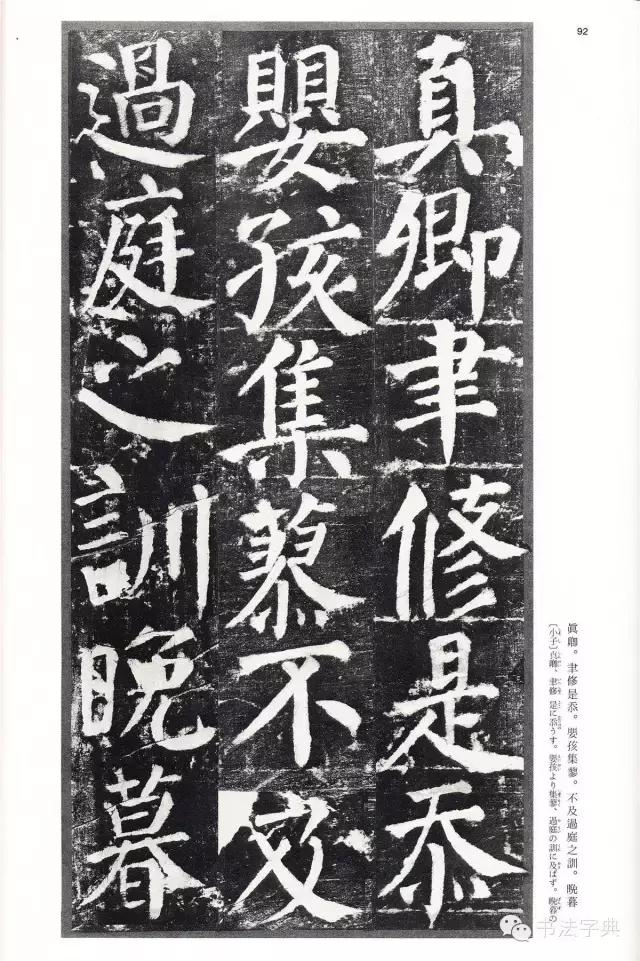 92
真卿聿修是忝
嬰孩集蓼不及
過庭之訓晚暮
眞卿。聿修是忝。嬰孩集蓼。不及過庭之訓。晩暮
〔小子〕真卿、聿修 是に忝うす。嬰孩より集蓼、過庭の訓に及ばず。晩暮の
书法字典